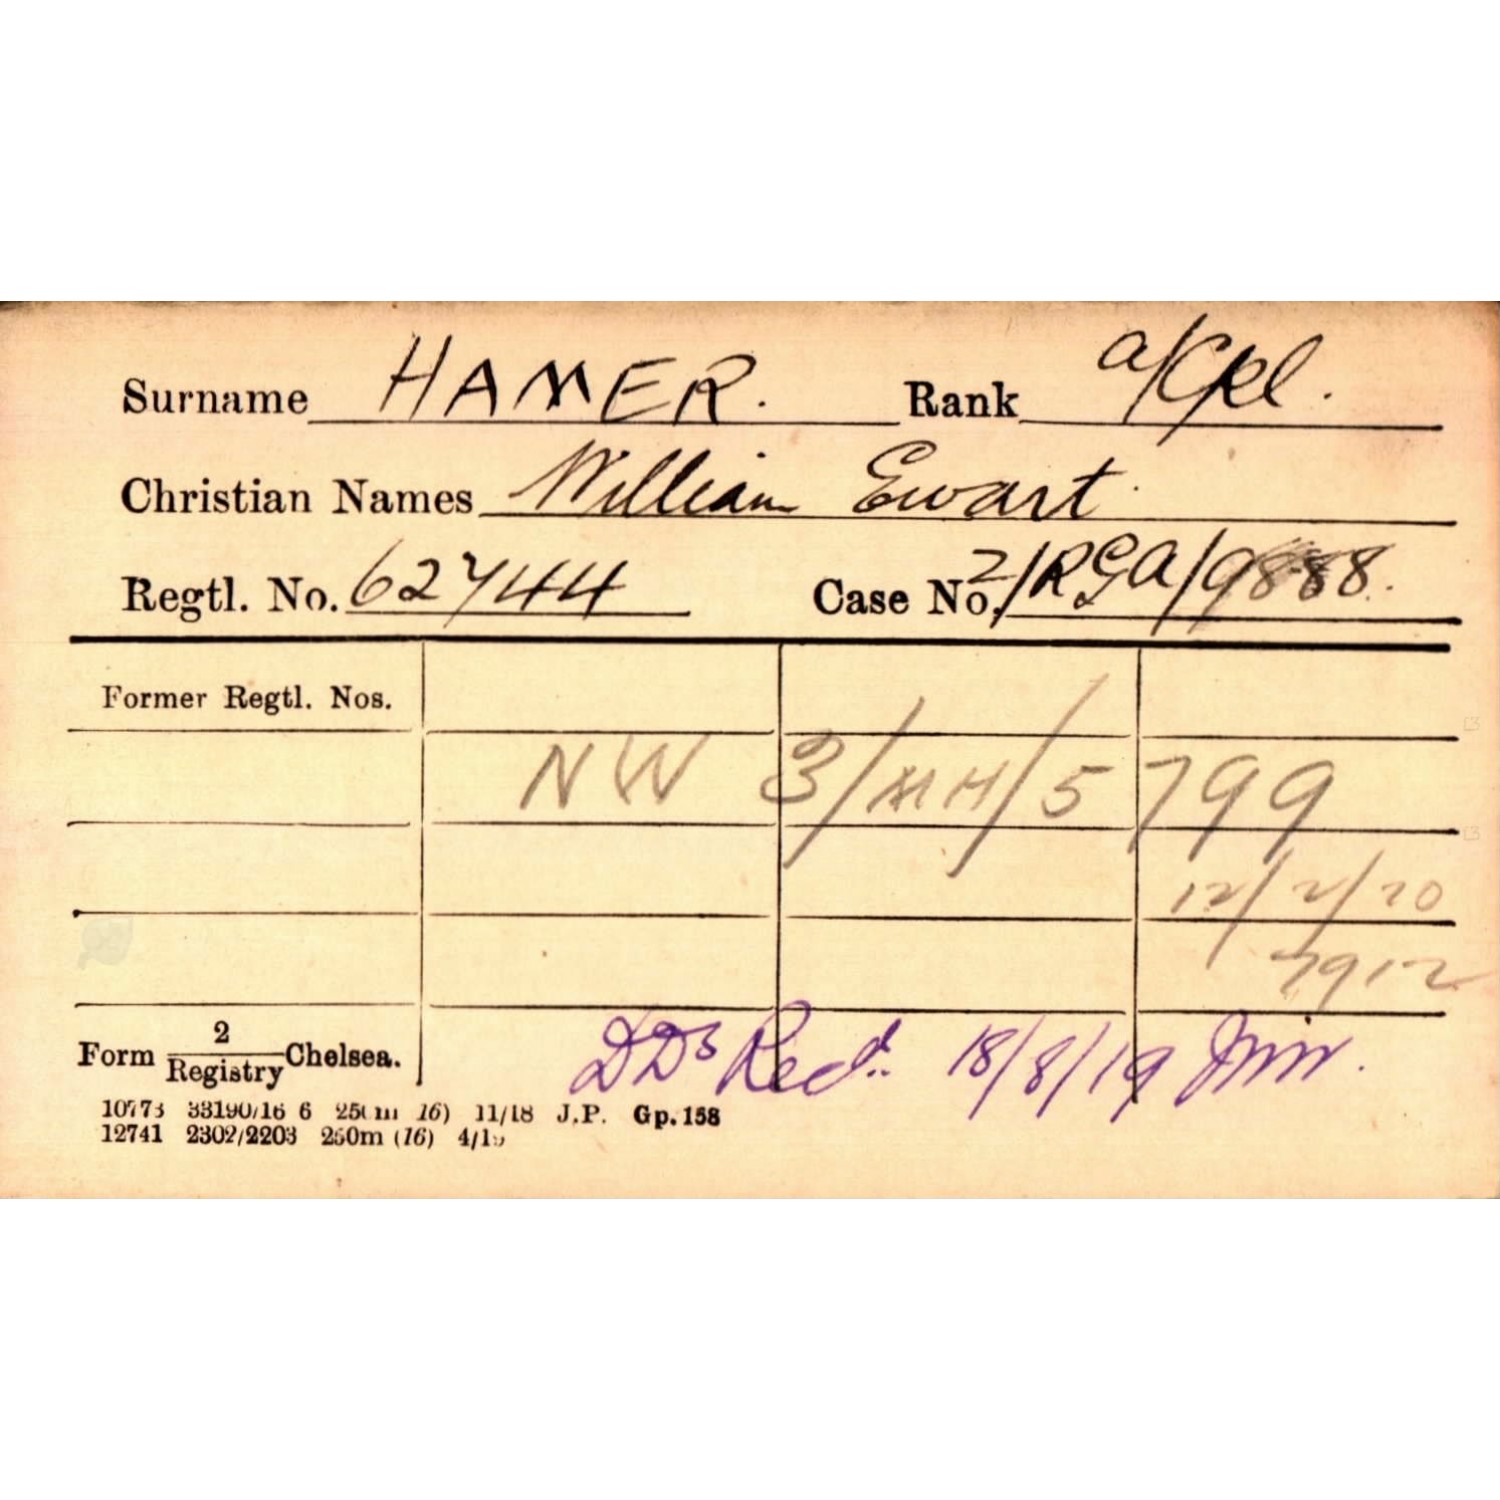 Surname HAMER. Rank a/Cpl.
Christian Names William Ewart.
Regtl. No. 62744 Case No. 2/RGA/9888.
Former Regtl. Nos.
NW 3/MH/5799
12/2/20
7912
Form 2/Registry Chelsea. DDs Recd. 18/8/19
10773 33190/16 6 250m (16) 11/18 J.P. Gp. 158
12741 2302/2203 250m (16) 4/19